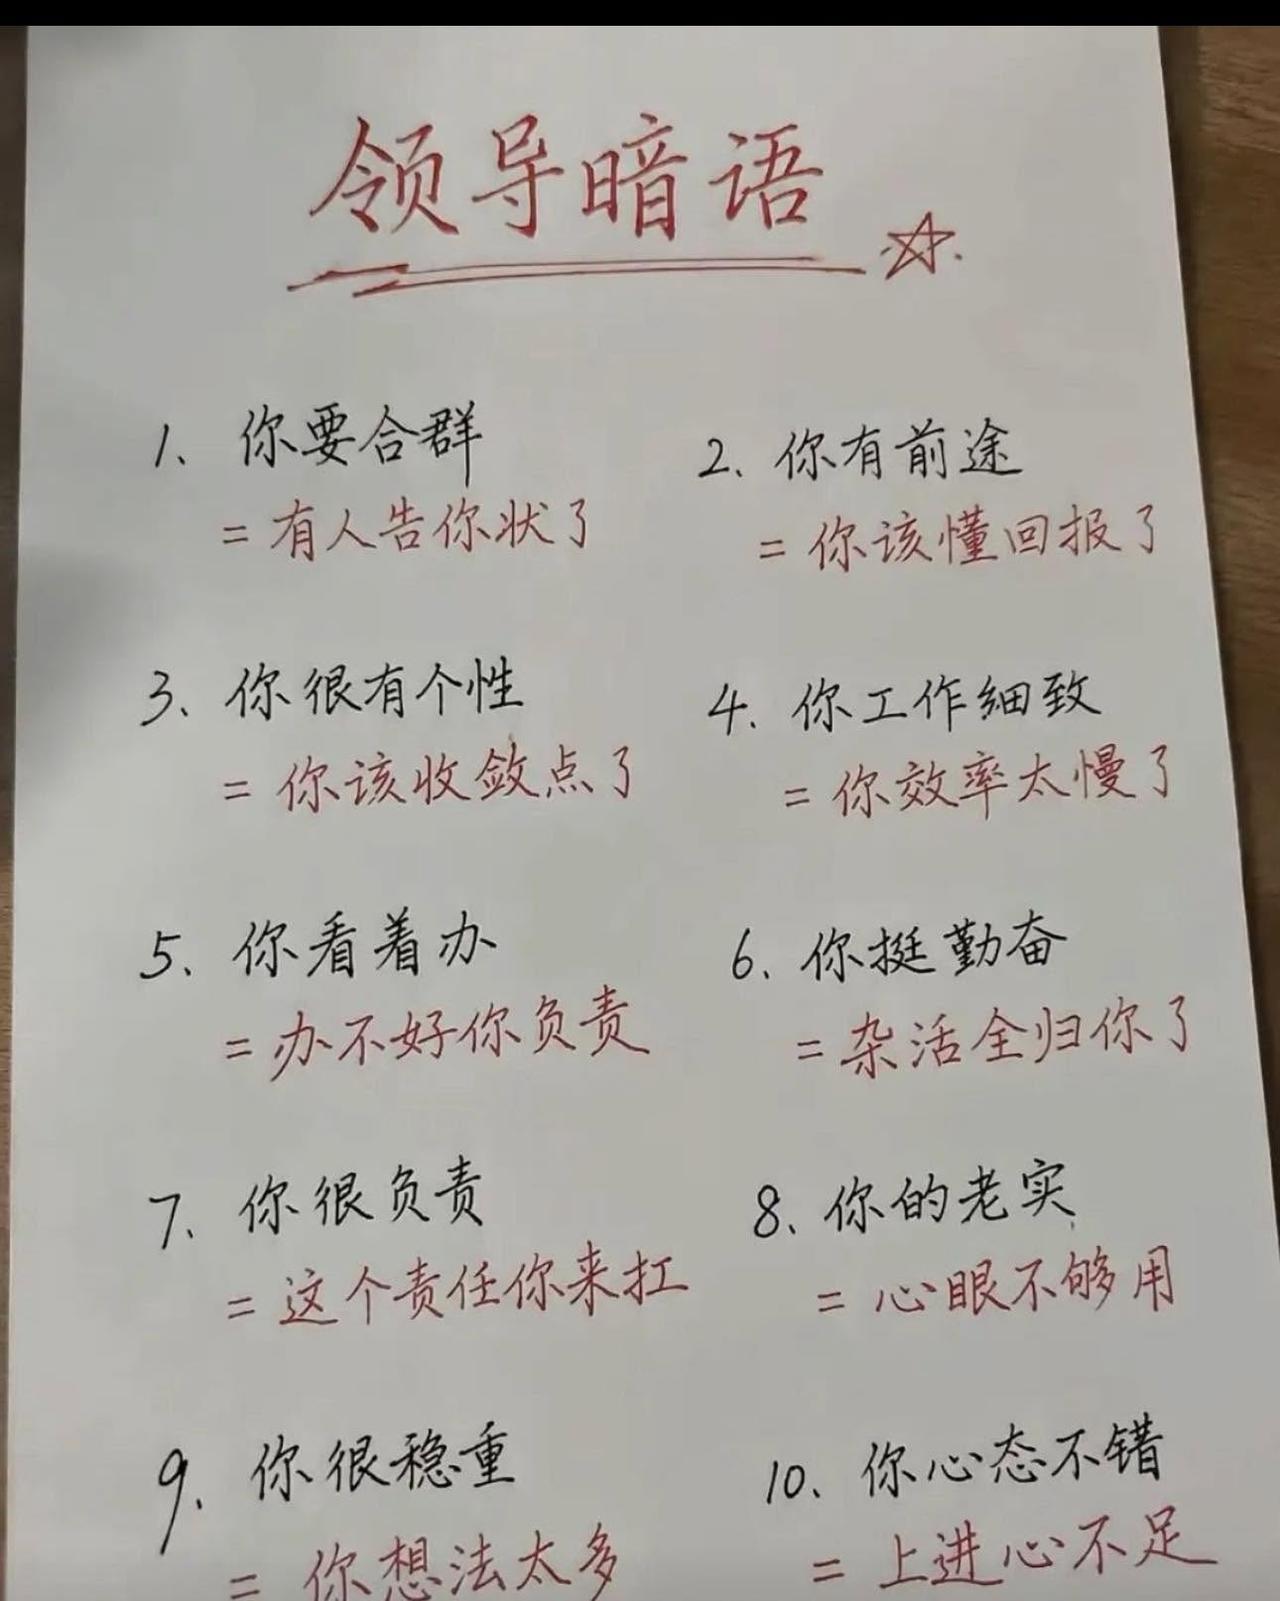 领导暗语
1、你要合群
=有人告你状了
2、你有前途
=你该懂回报了
3、你很有个性
=你该收敛点了
4、你工作细致
=你效率太慢了
5、你看着办
=办不好你负责
6、你挺勤奋
=杂活全归你了
7、你很负责
=这个责任你来扛
8、你的老实
=心眼不够用
9、你很稳重
=你想法太多
10、你心态不错
=上进心不足